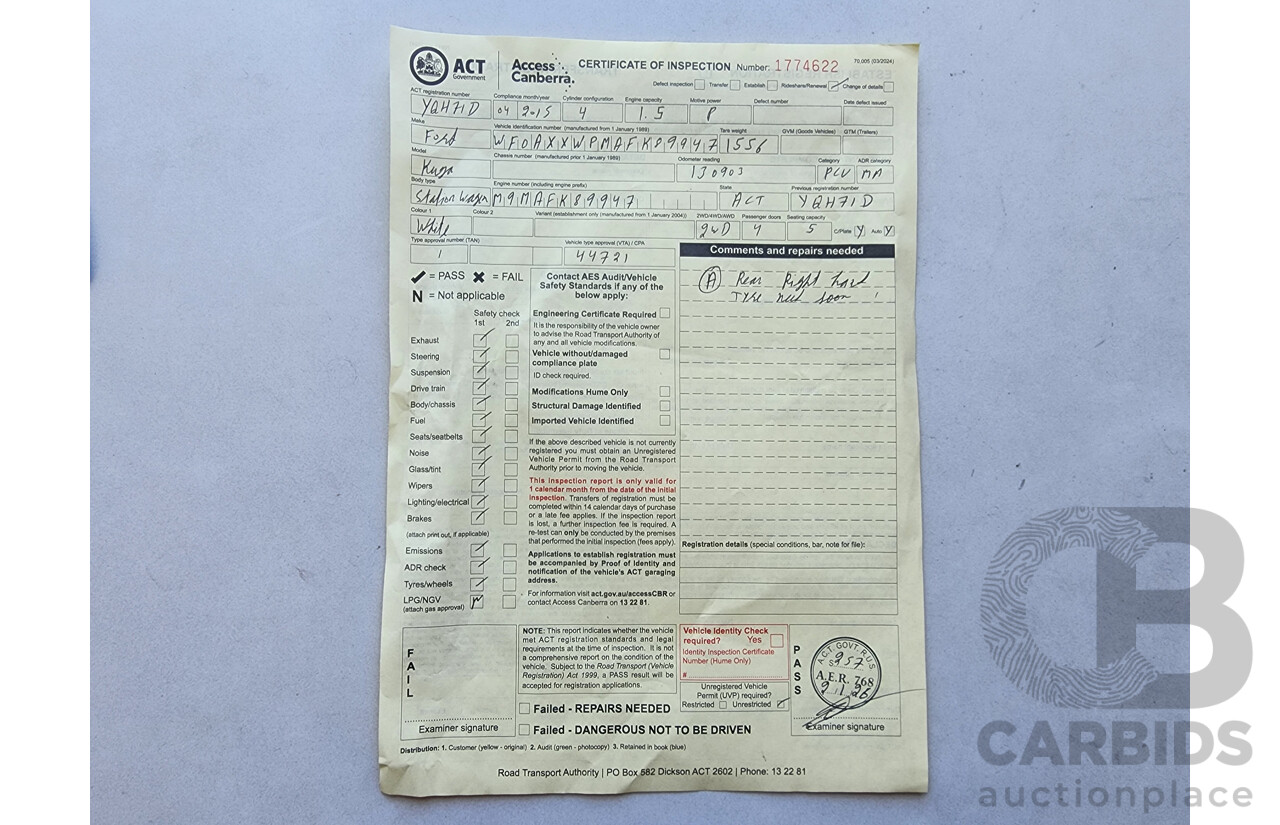 ACT Government
Access Canberra.
CERTIFICATE OF INSPECTION Number: 1774622
70.005 (03/2024)
Defect inspection Transfer Establish Rideshare/Renewal Change of details
ACT registration number Compliance month/year Cylinder configuration Engine capacity Motive power Defect number Date defect issued
YQH71D 04 2015 4 1.5 P
Make Vehicle identification number (manufactured from 1 January 1989) Tare weight GVM (Goods Vehicles) GTM (Trailers)
Ford WF0AXXWPMAFK89947 1556
Model Chassis number (manufactured prior 1 January 1989) Odometer reading Category ADR category
Kuga 130903 PCV MA
Body type Engine number (including engine prefix) State Previous registration number
Station Wagon M9MAFK89947 ACT YQH71D
Colour 1 Colour 2 Variant (establishment only (manufactured from 1 January 2004)) 2WD/4WD/AWD Passenger doors Seating capacity
White 2WD 4 5 C/Plate Y Auto Y
Type approval number (TAN) Vehicle type approval (VTA) / CPA
1 44721
Comments and repairs needed
(A) Rear Right hand
Tyre need soon !
= PASS = FAIL
N = Not applicable
Safety check
1st 2nd
Exhaust
Steering
Suspension
Drive train
Body/chassis
Fuel
Seats/seatbelts
Noise
Glass/tint
Wipers
Lighting/electrical
Brakes
(attach print out, if applicable)
Emissions
ADR check
Tyres/wheels
LPG/NGV N
(attach gas approval)
Contact AES Audit/Vehicle
Safety Standards if any of the
below apply:
Engineering Certificate Required
It is the responsibility of the vehicle owner
to advise the Road Transport Authority of
any and all vehicle modifications.
Vehicle without/damaged
compliance plate
ID check required.
Modifications Hume Only
Structural Damage Identified
Imported Vehicle Identified
If the above described vehicle is not currently
registered you must obtain an Unregistered
Vehicle Permit from the Road Transport
Authority prior to moving the vehicle.
This inspection report is only valid for
1 calendar month from the date of the initial
inspection. Transfers of registration must be
completed within 14 calendar days of purchase
or a late fee applies. If the inspection report
is lost, a further inspection fee is required. A
re-test can only be conducted by the premises
that performed the initial inspection (fees apply).
Applications to establish registration must
be accompanied by Proof of Identity and
notification of the vehicle's ACT garaging
address.
For information visit act.gov.au/accessCBR or
contact Access Canberra on 13 22 81.
Registration details (special conditions, bar, note for file):
FAIL
Examiner signature
NOTE: This report indicates whether the vehicle
met ACT registration standards and legal
requirements at the time of inspection. It is not
a comprehensive report on the condition of the
vehicle. Subject to the Road Transport (Vehicle
Registration) Act 1999, a PASS result will be
accepted for registration applications.
Failed - REPAIRS NEEDED
Failed - DANGEROUS NOT TO BE DRIVEN
Vehicle Identity Check
required? Yes
Identity Inspection Certificate
Number (Hume Only)
#
Unregistered Vehicle
Permit (UVP) required?
Restricted Unrestricted
PASS
A.C.T. GOVT. R.U.S
957
A.E.R. 768
9.1.26
Examiner signature
Distribution: 1. Customer (yellow - original) 2. Audit (green - photocopy) 3. Retained in book (blue)
Road Transport Authority | PO Box 582 Dickson ACT 2602 | Phone: 13 22 81
CB
CARBIDS
auctionplace